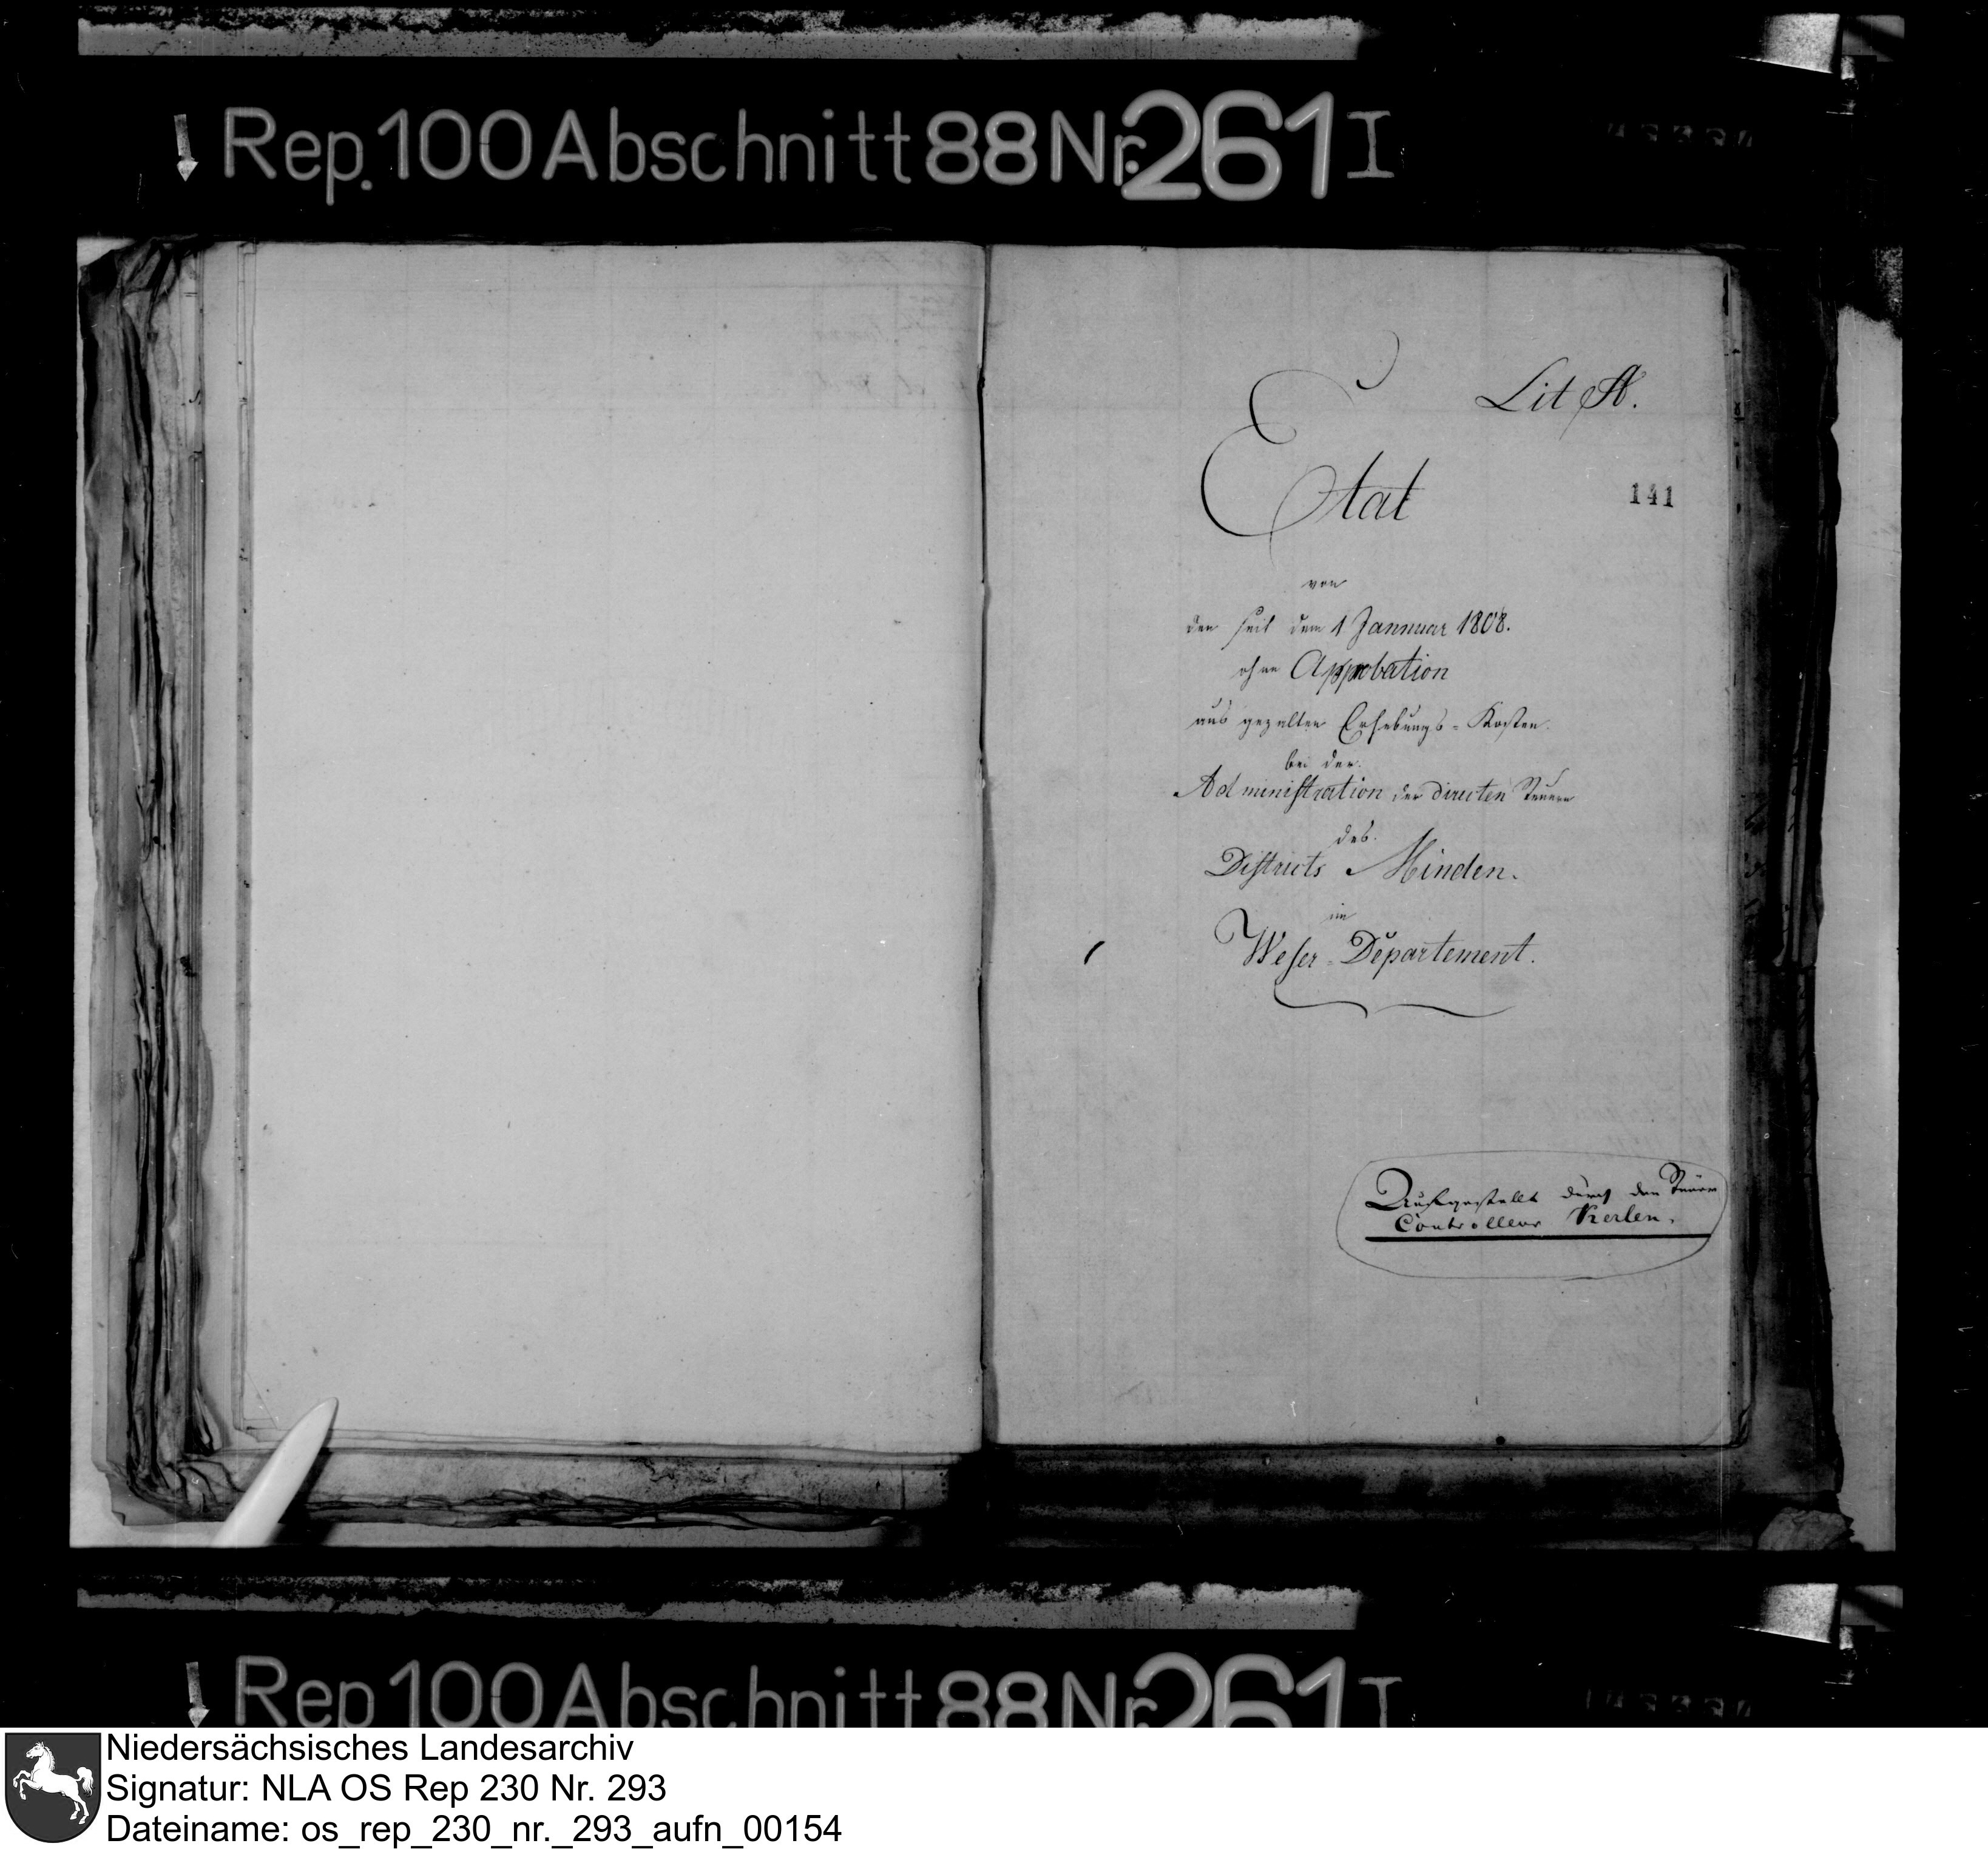 Rep. 100 Abschnitt 88 Nr. 261 I
Lit A.
Etat
141
von
den seit dem 1 Januar 1808.
ohne Approbation
aus gezalten Erhebungs-Kosten.
bei der
Administration der directen Steuern
des
Districts Minden.
im
Weser-Departement.
Aufgestellt durch den Steuer
Controlleur Kerlen.
Rep 100 Abschnitt 88 Nr. 261 I
Niedersächsisches Landesarchiv
Signatur: NLA OS Rep 230 Nr. 293
Dateiname: os_rep_230_nr._293_aufn_00154